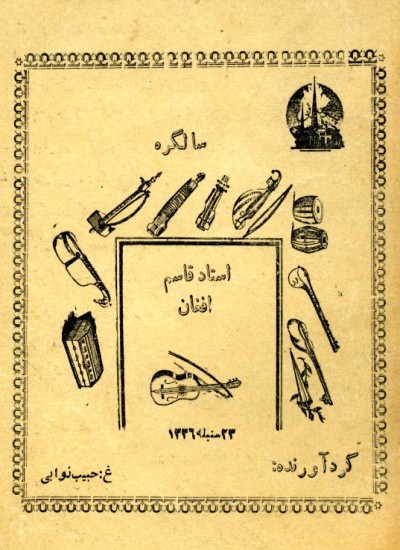 سالگره
استاد قاسم
افغان
۲۳ سنبله ۱۳۳۶
گردآورنده:
غ: حبیب نوابی